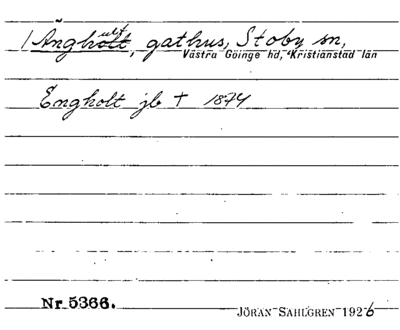 / Ängholt, gathus, Stoby sn,
Västra Göinge hd, Kristianstad län
Engholt jb † 1874
Nr 5366.
JÖRAN SAHLGREN 1926